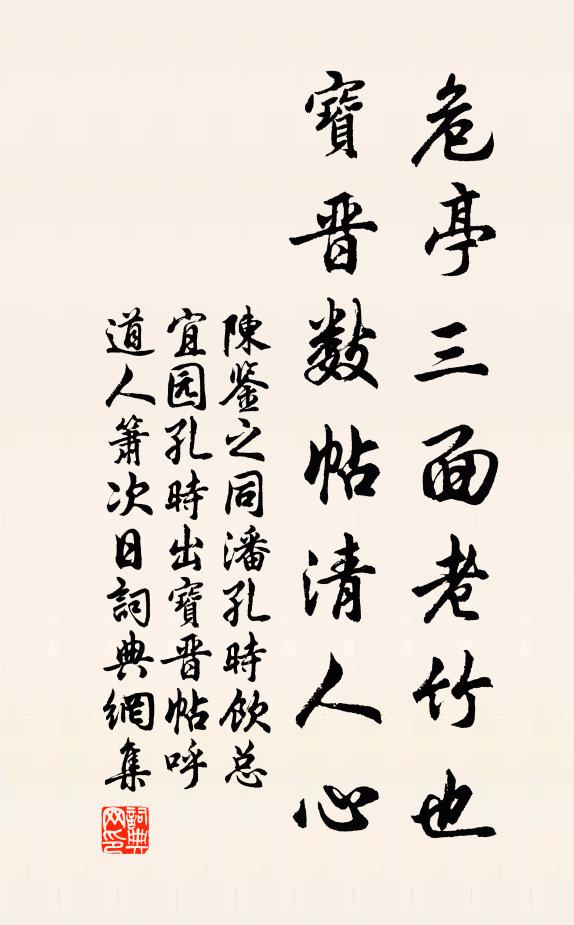 危亭三面老竹也
寶晋数帖清人心
陳鉴之同潘孔時飲总
宜园孔時出寶晋帖呼
道人箫次日詞典網集
詞典网印